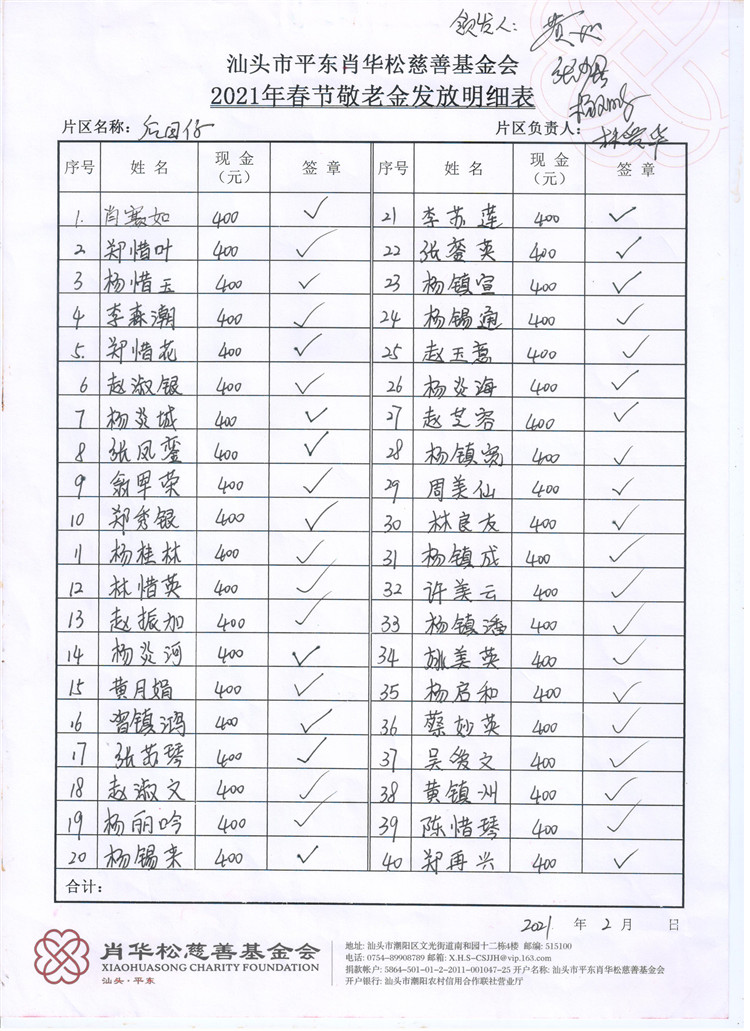 领发人：
汕头市平东肖华松慈善基金会
2021年春节敬老金发放明细表
片区名称： 片区负责人： 林崇华
序号 姓名 现金（元） 签章 序号 姓名 现金（元） 签章
1. 肖襄如 400 ✓ 21 李苏莲 400 ✓
2 郑惜叶 400 ✓ 22 张銮英 400 ✓
3 杨惜玉 400 ✓ 23 杨镇宣 400 ✓
4 李森潮 400 ✓ 24 杨锡通 400 ✓
5. 郑惜花 400 ✓ 25 赵玉意 400 ✓
6 赵淑银 400 ✓ 26 杨炎海 400 ✓
7 杨炎城 400 ✓ 27 赵芝容 400 ✓
8 张凤銮 400 ✓ 28 杨镇 400 ✓
9 翁早荣 400 ✓ 29 周美仙 400 ✓
10 郑秀银 400 ✓ 30 林良友 400 ✓
11 杨桂林 400 ✓ 31 杨镇成 400 ✓
12 林惜英 400 ✓ 32 许美云 400 ✓
13 赵振加 400 ✓ 33 杨镇潘 400 ✓
14 杨炎河 400 ✓ 34 姚美英 400 ✓
15 黄月娟 400 ✓ 35 杨启和 400 ✓
16 镇鸿 400 ✓ 36 蔡妙英 400 ✓
17 张苏琴 400 ✓ 37 吴俊文 400 ✓
18 赵淑文 400 ✓ 38 黄镇州 400 ✓
19 杨丽吟 400 ✓ 39 陈惜琴 400 ✓
20 杨锡来 400 ✓ 40 郑再兴 400 ✓
合计：
2021. 年 2 月 日
肖华松慈善基金会
XIAOHUASONG CHARITY FOUNDATION
汕头·平东
地址: 汕头市潮阳区文光街道南和园十二栋4楼 邮编: 515100
电话: 0754-89908789 邮箱: X.H.S-CSJJH@vip.163.com
捐款帐户: 5864-501-01-2-2011-001047-25 开户名称: 汕头市平东肖华松慈善基金会
开户银行: 汕头市潮阳农村信用合作联社营业厅